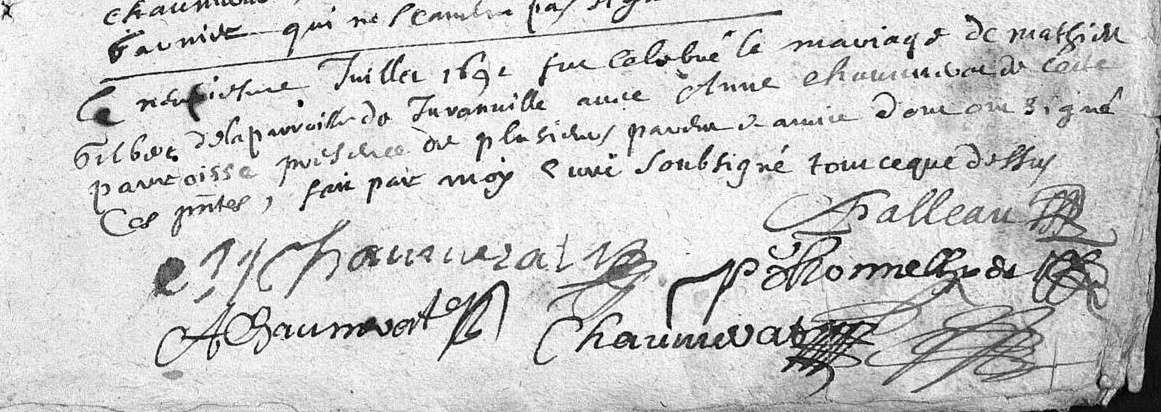 chaumerat
Garnier qui ne scauent pas signé
Le neufiesme Juillet 1692 fut celebré le mariage de mathieu
Gilbert de la parroisse de Juranville auec Anne Chaumerat de ceste
parroisse presence de plusieurs parens & amis dont on signé
Ces pntes, fait par moy Curé soubsigné tout ceque dessus
Palleau
Chaumerat
P Thonnellier
AChaumerat
Chaumerat